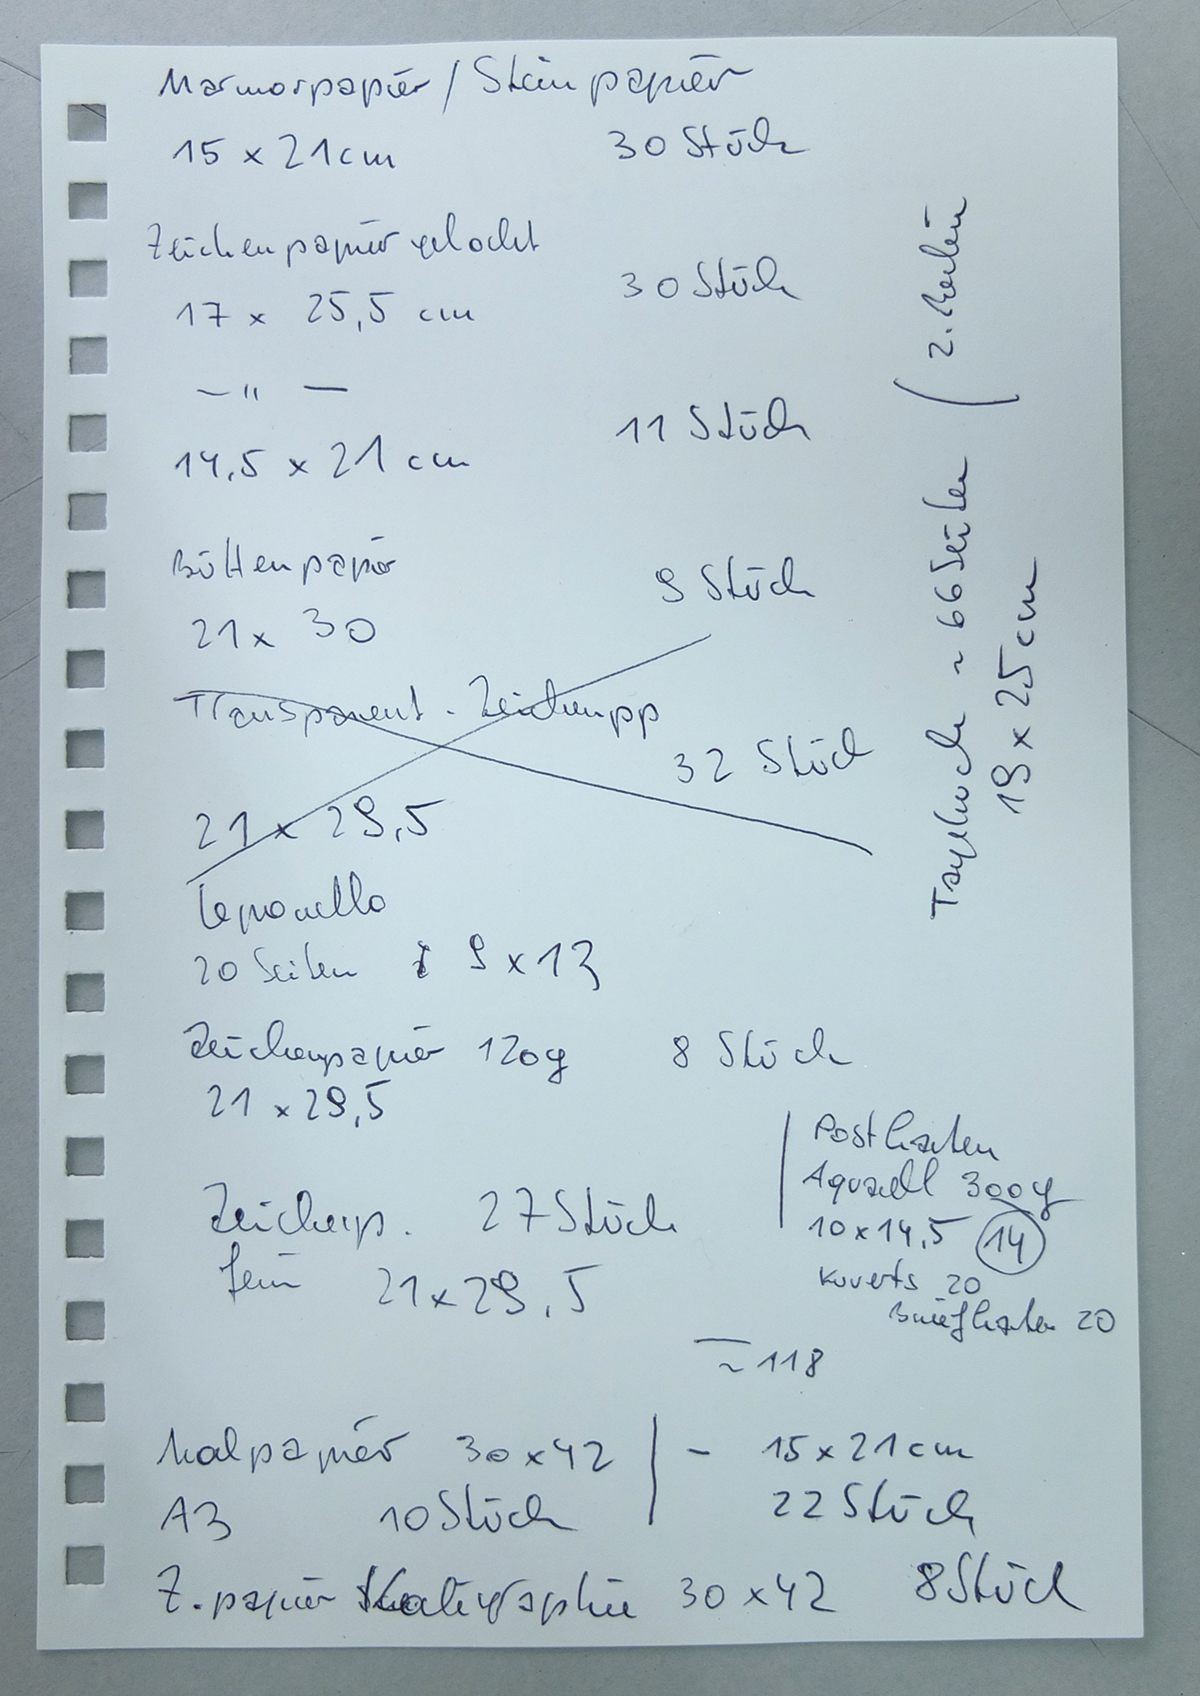 Marmorpapier / Steinpapier
15 x 21 cm 30 Stück
Zeichenpapier gelocht
17 x 25,5 cm 30 Stück
— " —
14,5 x 21 cm 11 Stück
Büttenpapier
21 x 30 9 Stück
Transparent - Zeichenpp
32 Stück
21 x 29,5
Leporello
20 Seiten 9 x 13
Zeichenpapier 120g 8 Stück
21 x 29,5
Zeichenp. 27 Stück
fein 21 x 29,5
Postkarten
Aquarell 300g
10 x 14,5 14
Kuverts 20
Briefkarten 20
~ 118
Malpapier 30 x 42 | - 15 x 21 cm
A3 10 Stück 22 Stück
Z.papier Kaligraphie 30 x 42 8 Stück
Tagebuch ~ 66 Seiten ( z. Malen
19 x 25 cm